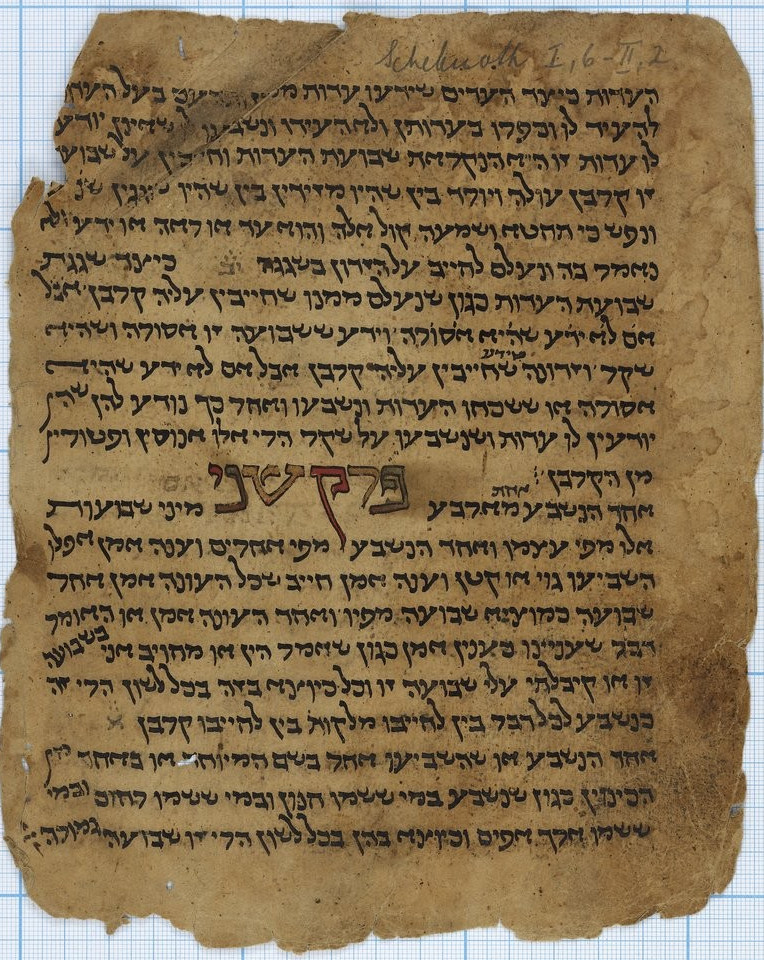 Schebuoth I, 6–II, 2.
העדות כיצד העדים שידעו עדות בעל העדו
להעיד לו וכפרו בעדותן ולא העידו ונשבעו לו שאינן יודע
לו עדות זו היא הנקראת שבועת העדות וחייבין על שבוע
זו קרבן עולה ויורד בין שהיו מזידין בין שהיו שוגגין שנ
ונפש כי תחטא ושמעה קול אלה והוא עד או ראה או ידע ולא
נאמר בה ונעלם לחייב על הזדון כשגגה יב כיצד שגגת
שבועת העדות כגון שנעלם ממנו שחייבין עליה קרבן אבל
אם לא ידע שהיא אסורה וידע ששבועה זו אסורה ושהיא
שידע
שקר וזדונה שחייבין עליה קרבן אבל אם לא ידע שהיא
אסורה או ששכחו העדות ונשבעו ואחר כך נודע להן שהן
יודעין לו עדות ושנשבעו על שקר הרי אלו אנוסין ופטורין
מן הקרבן פרק שני
אחת
אחד הנשבע מארבע מיני שבועות
אלו מפי עצמו ואחד הנשבע מפי אחרים וענה אמן אפלו
השביעו גוי או קטן וענה אמן חייב שכל העונה אמן אחר
שבועה כמוציא שבועה מפיו ואחד העונה אמן או האומר
דבר שעניינו כענין אמן כגון שאמר הין או מחויב אני בשבועה
זו או קיבלתי עלי שבועה זו וכל כיוצא בזה בכל לשון הרי זה
כנשבע לכל דבר בין לחייבו מלקות בין לחייבו קרבן
אחד הנשבע או שהשביעו אחר בשם המיוחד או באחד מן
הכינוין כגון שנשבע במי ששמו חנון ובמי ששמו רחום ובמי
ששמו ארך אפים וכיוצא בהן בכל לשון הרי זו שבועה גמורה